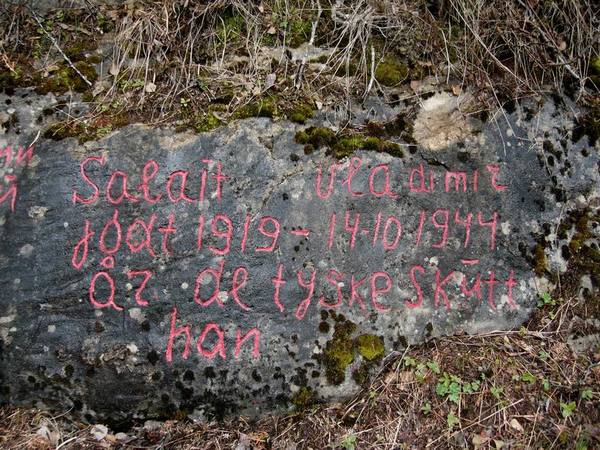 Salait vladimir
jödt 1919 - 14-10 1944
år de tyske skūtt
han